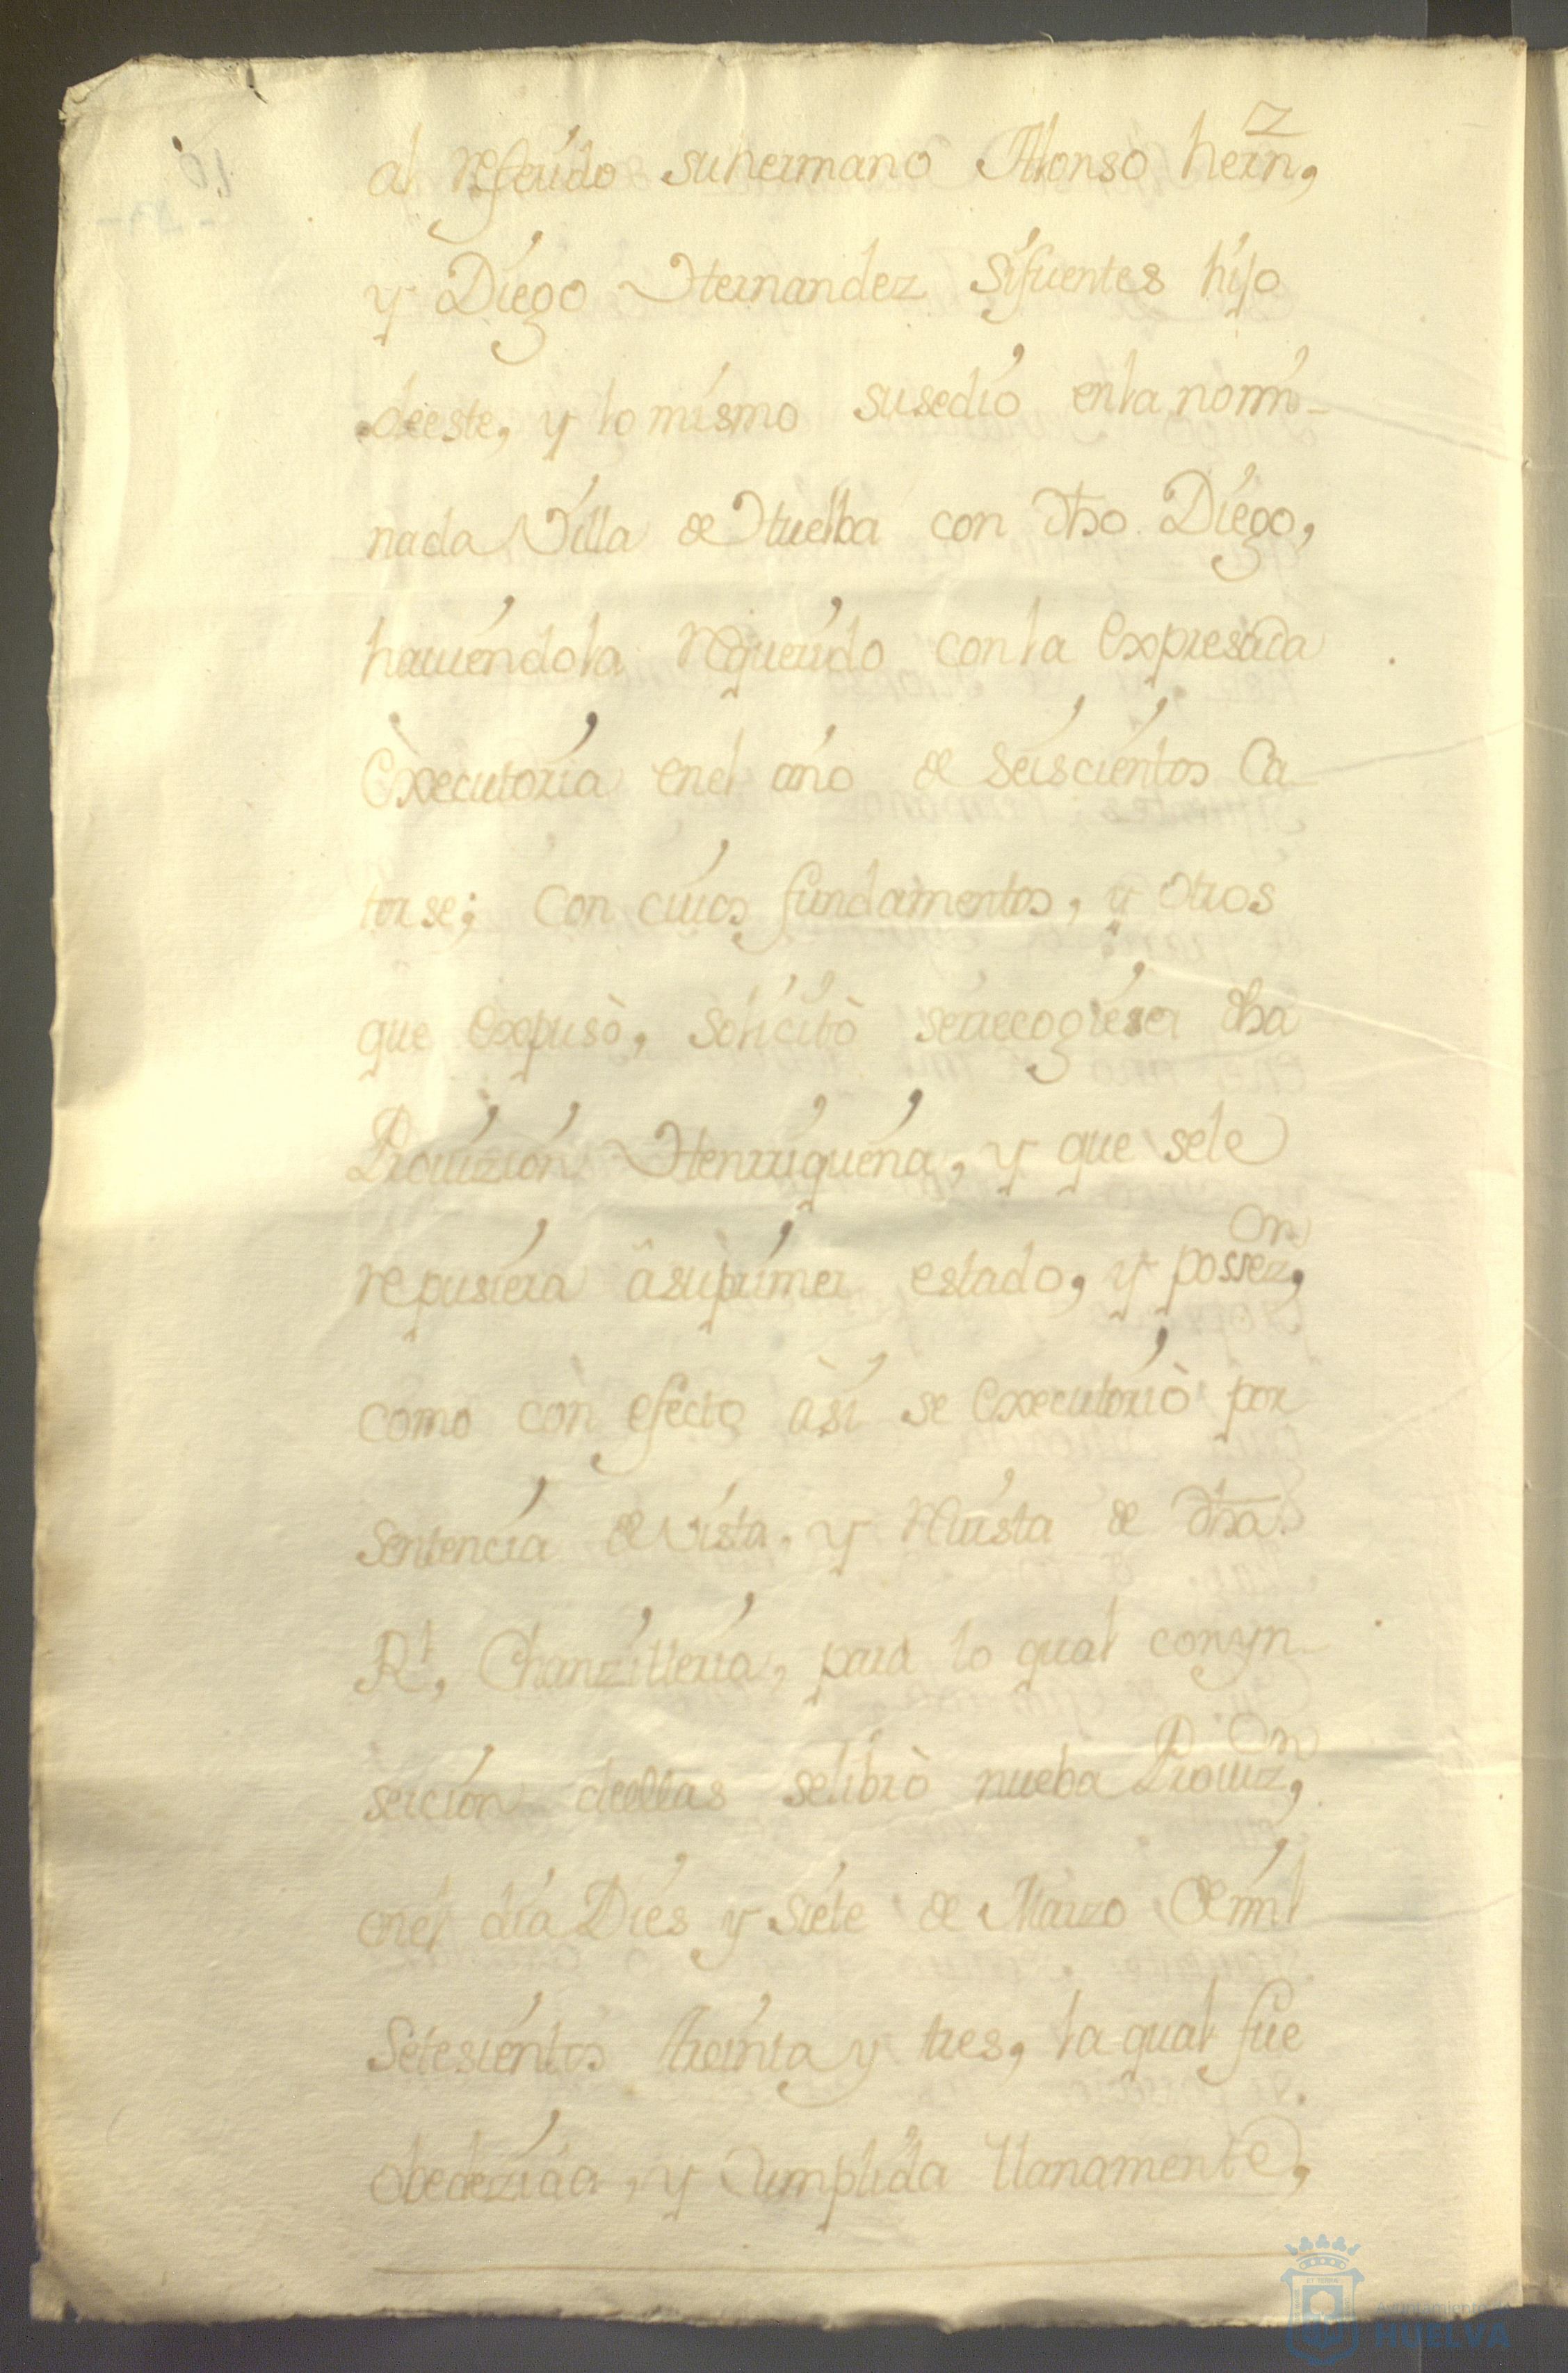 al referido suhermano Alonso hern^z,
y Diego Hernandez Sifuentes hijo
deeste, y lo mismo susedio enla nomi-
nada Villa de Huelba con dho Diego,
haviendola requerido con la Expresada
Executoria enel año de Seiscientos Ca-
torse; Con cuios fundamentos, y otros
que Expusò, Solicitò serecogiese dha
Provizion Henrriqueña, y que sele
repusiera â suprimer estado, y possez^on,
como con efecto àsi se Executoriò por
Sentencia de Vista, y Revista de dha
R^l, Chanzilleria, para lo qual conyn-
sercion deellas selibrò nueba Proviz^on,
enel dia Dies y Siete de Marzo de mil
Setesientos treinta y tres, la qual fue
obedezida, y Cumplida llanamente,
Ayuntamiento de
HUELVA